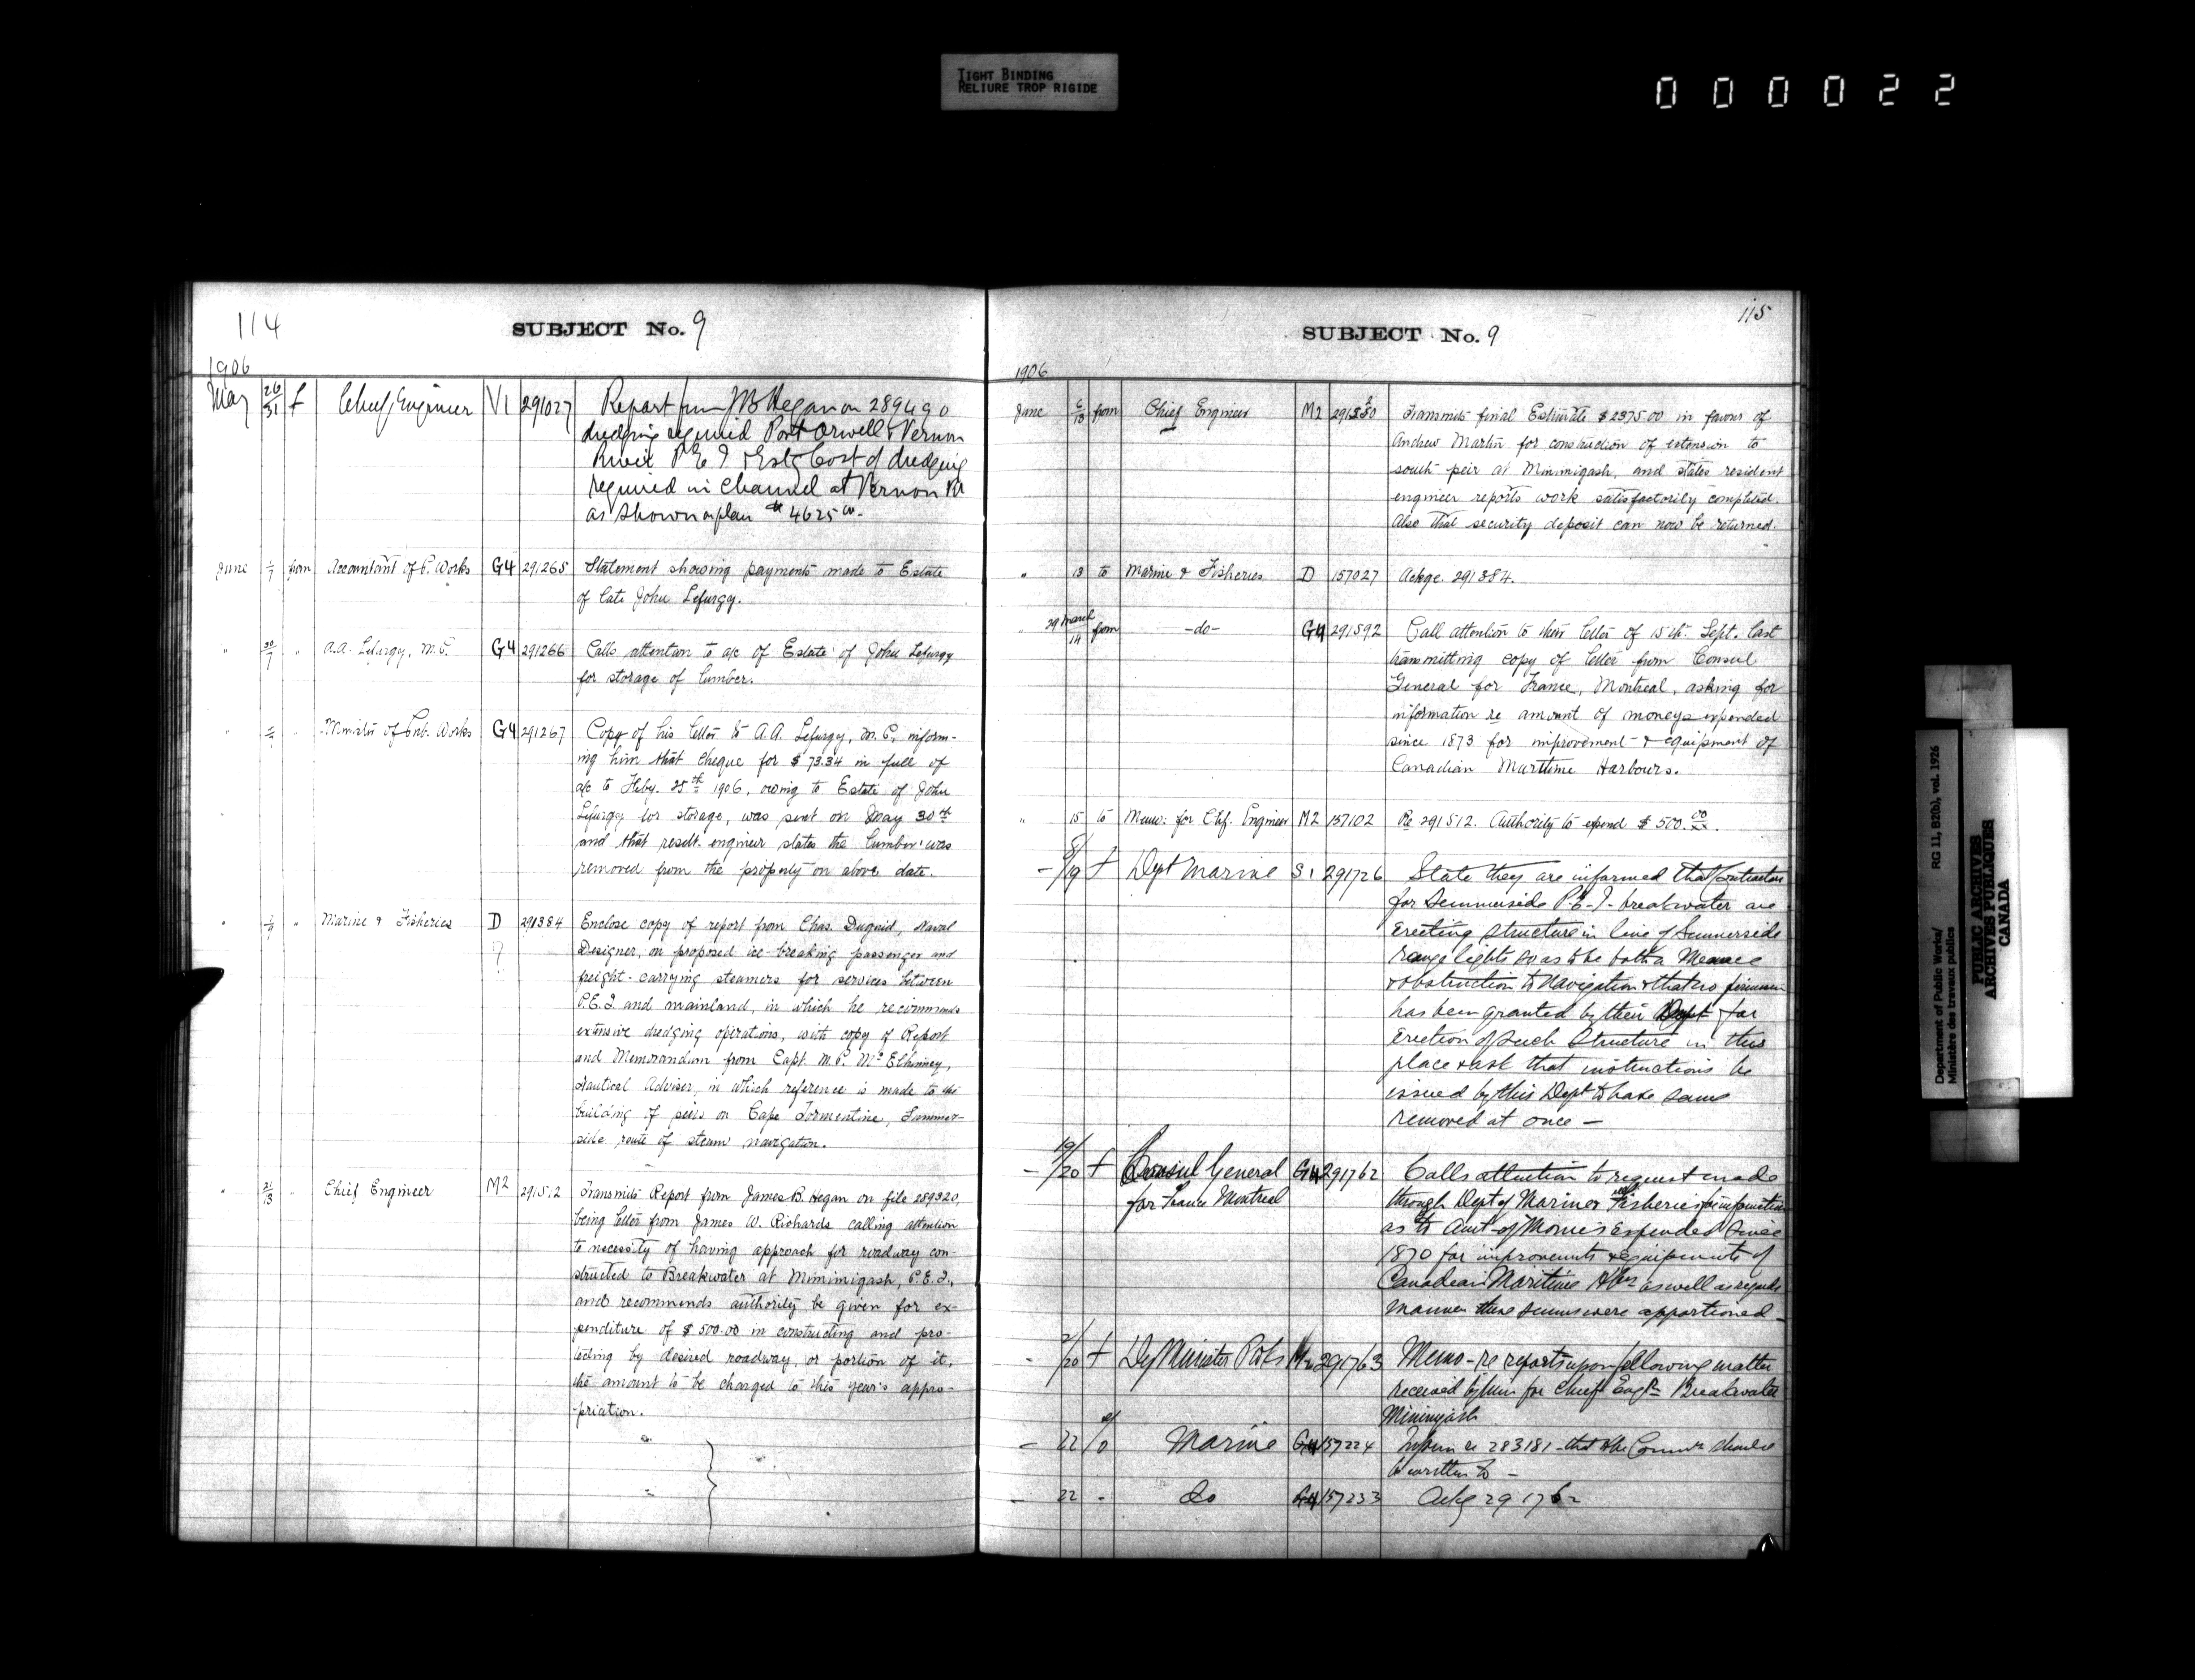 TIGHT BINDING
RELIURE TROP RIGIDE
000022
114
SUBJECT No. 9
1906
May 26/31 f Chief Engineer V1 291027 Report from JB Hegan on 289490
dredging required Port Orwell & Vernon
River P E I & Est Cost of dredging
required in Channel at Vernon Rr
as shown on plan $4625 00.
June 1/7 from Accountant of P. Works G4 291265 Statement showing payments made to Estate
of late John Lefurgy.
" 30/7 " A.A. Lefurgy, M.P. G4 291266 Calls attention to a/c of Estate of John Lefurgy
for storage of lumber.
" " Minister of Pub. Works G4 291267 Copy of his letter to A.A. Lefurgy, M.P., inform-
ing him that cheque for $73.34 in full of
a/c to Feby. 25th 1906, owing to Estate of John
Lefurgy for storage, was sent on May 30th
and that resdt. engineer states the lumber was
removed from the property on above date.
" " Marine & Fisheries D 291384 Enclose copy of report from Chas. Duguid, Naval
Designer, on proposed ice-breaking passenger and
freight-carrying steamers for services between
P.E.I and mainland, in which he recommends
extensive dredging operations, with copy of Report
and Memorandum from Capt. M.P. McElhinney,
Nautical Adviser, in which reference is made to the
building of piers on Cape Tormentine, Summer-
side route of steam navigation.
" 21/13 " Chief Engineer M2 291512 Transmits Report from James B. Hegan on file 289320,
being letter from James W. Richards calling attention
to necessity of having approach for roadway con-
structed to Breakwater at Mimimigash, P.E.I.,
and recommends authority be given for ex-
penditure of $500.00 in constructing and pro-
tecting by desired roadway, or portion of it,
the amount to be charged to this year's appro-
priation.
115
SUBJECT No. 9
1906
June 6/13 from Chief Engineer M2 Transmits final Estimate $2375.00 in favour of
Andrew Martin for construction of extension to
south peir at Mimimigash, and states resident
engineer reports work satisfactorily completed.
Also that security deposit can now be returned.
" 13 to Marine & Fisheries D 157027 Ackge. 291384.
" 29 March/14 from -do- G4 291592 Call attention to their letter of 15th. Sept. last
transmitting copy of letter from Consul
General for France, Montreal, asking for
information re amount of moneys expended
since 1873 for improvement & equipment of
Canadian Maritime Harbours.
" 15 to Memo: for Chf. Engineer M2 157102 Re 291512. Authority to expend $500.00/xx.
- 8/19 f Dept Marine S1 291726 State they are informed that Contractors
for Summerside P.E.I. breakwater are
erecting structure in line of Summerside
range lights so as to be both a Menace
& obstruction to Navigation & that no permission
has been granted by their Dept for
erection of such structure in this
place & ask that instructions be
issued by this Dept to have same
removed at once -
- 19/20 f Consul General G4 291762 Calls attention to request made
for France Montreal through Dept of Marine & Fisheries for information
as to Amt of Monies Expended since
1870 for improvements & equipments of
Canadian Maritime Hbrs as well as regards
manner these sums were apportioned -
- 2/20 f Dy Minister P Wks M2 291763 Memo - re reports upon following matter
received by him for Chief Engr Breakwater
Miminigash
- 22 Marine G4 157224 Inform re 283181 - that the should
be written to -
- 22 - do G4 157233 Ackg 291762
Department of Public Works/ RG 11, B2(b), vol. 1926
Ministère des travaux publics
PUBLIC ARCHIVES
ARCHIVES PUBLIQUES
CANADA